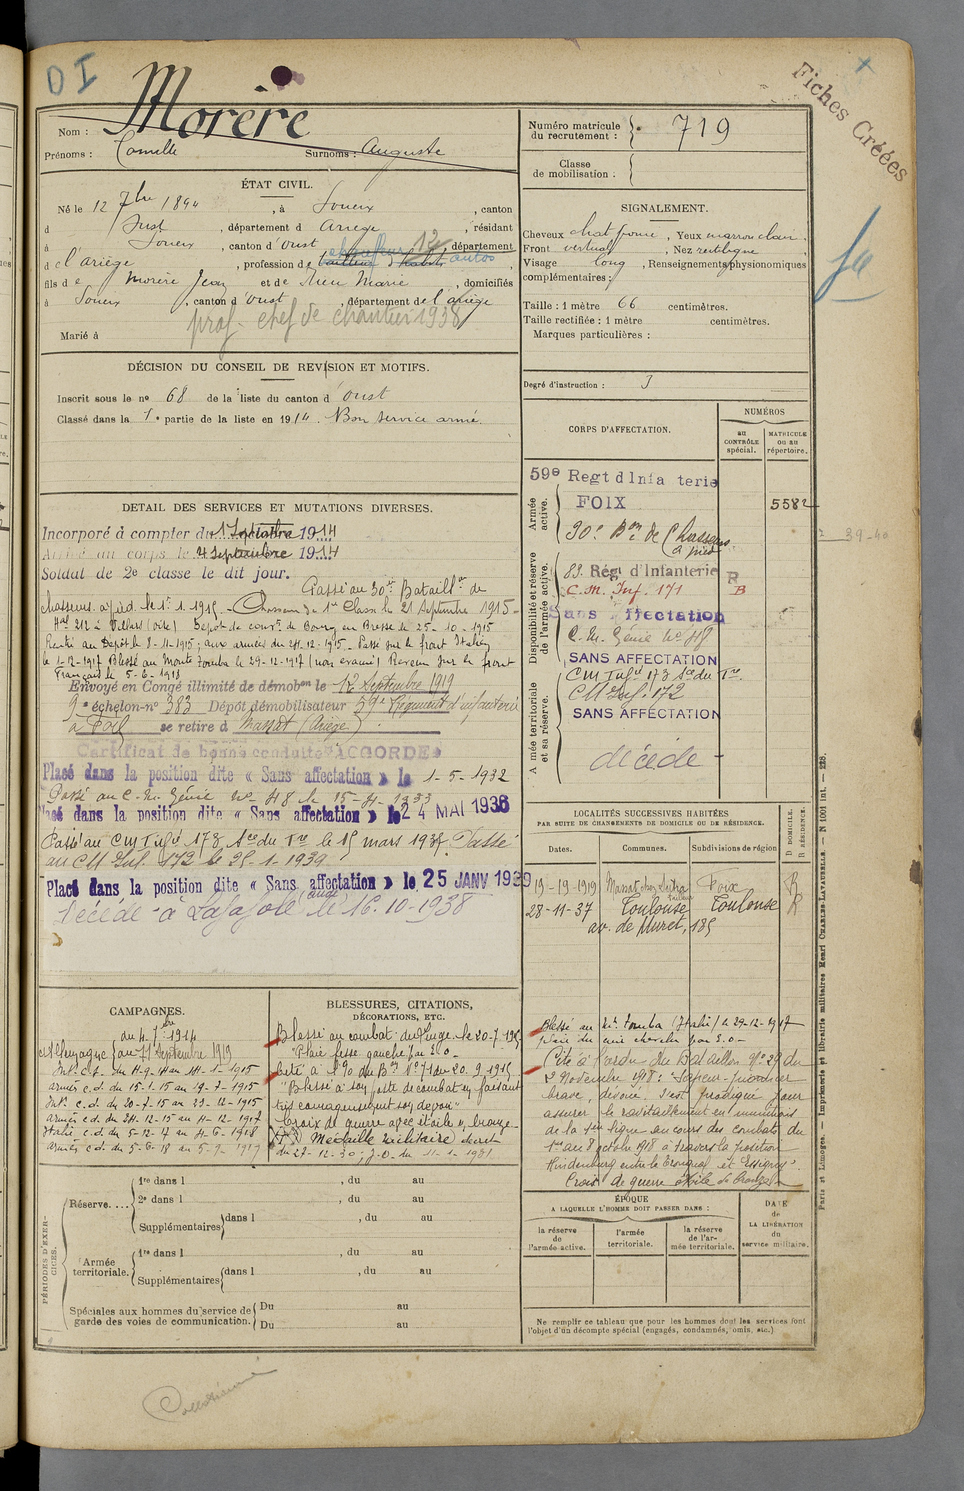 DI
Fiches Créées
Nom : Morère
Prénoms : Camille Surnoms : Auguste
Numéro matricule du recrutement : 719
Classe de mobilisation :
ÉTAT CIVIL.
Né le 12 7bre 1894, à Soueix, canton
d Oust, département d Ariège, résidant
à Soueix, canton d'Oust 12 département
d e l'ariège, profession de chauffeur d'autos,
fils de Morère Jean et de Dieu Marie, domiciliés
à Soueix, canton d'Oust, département de l'ariège
prof. chef de chantier 1938
Marié à
SIGNALEMENT.
Cheveux chat foncé, Yeux marron clair,
Front vertical, Nez rectiligne,
Visage long, Renseignements physionomiques
complémentaires :
Taille : 1 mètre 66 centimètres.
Taille rectifiée : 1 mètre centimètres.
Marques particulières :
Degré d'instruction : 3
DÉCISION DU CONSEIL DE REVISION ET MOTIFS.
Inscrit sous le no 68 de la liste du canton d'Oust
Classé dans la 1e partie de la liste en 1914. Bon service armé.
CORPS D'AFFECTATION.
NUMÉROS
au CONTRÔLE spécial.
MATRICULE OU AU répertoire.
Armée active.
59e Regt d'Infanterie
FOIX
5582
30e Bon de Chasseurs à pied
39-40
Disponibilité et réserve de l'armée active.
83. Régt d'Infanterie R
C.M. Inf. 171 B
Sans Affectation
C.M. Génie No 48
SANS AFFECTATION
Armée territoriale et sa réserve.
CM Infie 173 Sce du Tre.
CM Inf. 172
SANS AFFECTATION
décédé
DETAIL DES SERVICES ET MUTATIONS DIVERSES.
Incorporé à compter du 1 Septembre 1914
Arrivé au corps le 4 Septembre 1914
Soldat de 2e classe le dit jour.
Passé au 30e Bataillon de
chasseurs à pied le 1. 1. 1915. - Chasseur de 1e Classe le 21 Septembre 1915 -
Dépôt de conv. de Bourg en Bresse le 25-10-1915
Rentré au Dépôt le 8-11-1915; aux armées du 24-12-1915 - Passé sur le front Italien
le 1-12-1917 Blessé au Monte Tomba le 29-12-1917 (non évacué) Revenu sur le front
Français le 5-6-1918
Envoyé en Congé illimité de démobon le 12 Septembre 1919
9e échelon-no 383 Dépôt démobilisateur 59e Régiment d'infanterie
à Foix se retire à Massat (Ariège)
Certificat de bonne conduite "ACCORDÉ"
Placé dans la position dite « Sans affectation » le 1-5-1932
Passé au C.M. Génie No 48 le 15-4-1933
Placé dans la position dite « Sans affectation » le 24 MAI 1936
Passé au CM Infie 173 Sce du Tre le 15 mars 1937. Passé
au CM Inf. 172 le 25.1.1939.
Placé dans la position dite « Sans affectation » le 25 JANV 1939
Décédé à Lafajole (Aude) le 16.10-1938
LOCALITÉS SUCCESSIVES HABITÉES
PAR SUITE DE CHANGEMENTS DE DOMICILE OU DE RÉSIDENCE.
Dates. Communes. Subdivisions de région D DOMICILE. R RÉSIDENCE.
19-19-1919 Massat Foix R
28-11-37 Toulouse Toulouse R
av. de Muret, 185
CAMPAGNES.
du 4 7bre 1914
c Allemagne au 11 Septembre 1919
Int. c.d. du 4-9-14 au 14-1-1915
armées c.d. du 15-1-15 au 19-7-1915
Int. c.d. du 20-7-15 au 23-12-1915
armées c.d. du 24-12-15 au 4-12-1917
Italie c.d. du 5-12-17 au 4-6-1918
armées c.d. du 5-6-18 au 5-9-1919
BLESSURES, CITATIONS,
DÉCORATIONS, ETC.
Blessé au combat du Linge le 20-7-1915
"Plaie fesse gauche par E.O -
Cité à l'Ordre du Bon No 71 du 20.9.1915
"Blessé à son poste de combat en faisant
très courageusement son devoir"
Croix de guerre avec étoile de bronze -
Médaille militaire décret
du 27-12-30; J.O. du 11-1-1931.
Blessé au Mt Tomba (Italie) le 29-12-1917
plaie du cuir chevelu par E.O -
Cité à l'ordre du Bataillon No 29 du
2 Novembre 1918 : "Sapeur-pionnier
brave, dévoué. S'est prodigué pour
assurer le ravitaillement en munitions
de la 1ère ligne au cours des combats du
1er au 8 octobre 1918 à travers la position
Hindenburg entre le Tronquoy et Essigny".
Croix de guerre étoile de bronze -
ÉPOQUE
A LAQUELLE L'HOMME DOIT PASSER DANS :
la réserve de l'armée active.
l'armée territoriale.
la réserve de l'armée territoriale.
DATE de LA LIBÉRATION du service militaire.
PÉRIODES D'EXERCICES.
Réserve....
1re dans l , du au
2e dans l , du au
Supplémentaires dans l , du au
Armée territoriale.
1re dans l , du au
Supplémentaires dans l , du au
Spéciales aux hommes du service de garde des voies de communication.
Du au
Du au
Ne remplir ce tableau que pour les hommes dont les services font
l'objet d'un décompte spécial (engagés, condamnés, omis, etc.)
Paris et Limoges. — Imprimerie et librairie militaires Henri CHARLES-LAVAUZELLE. — N 1001 int. — 128.